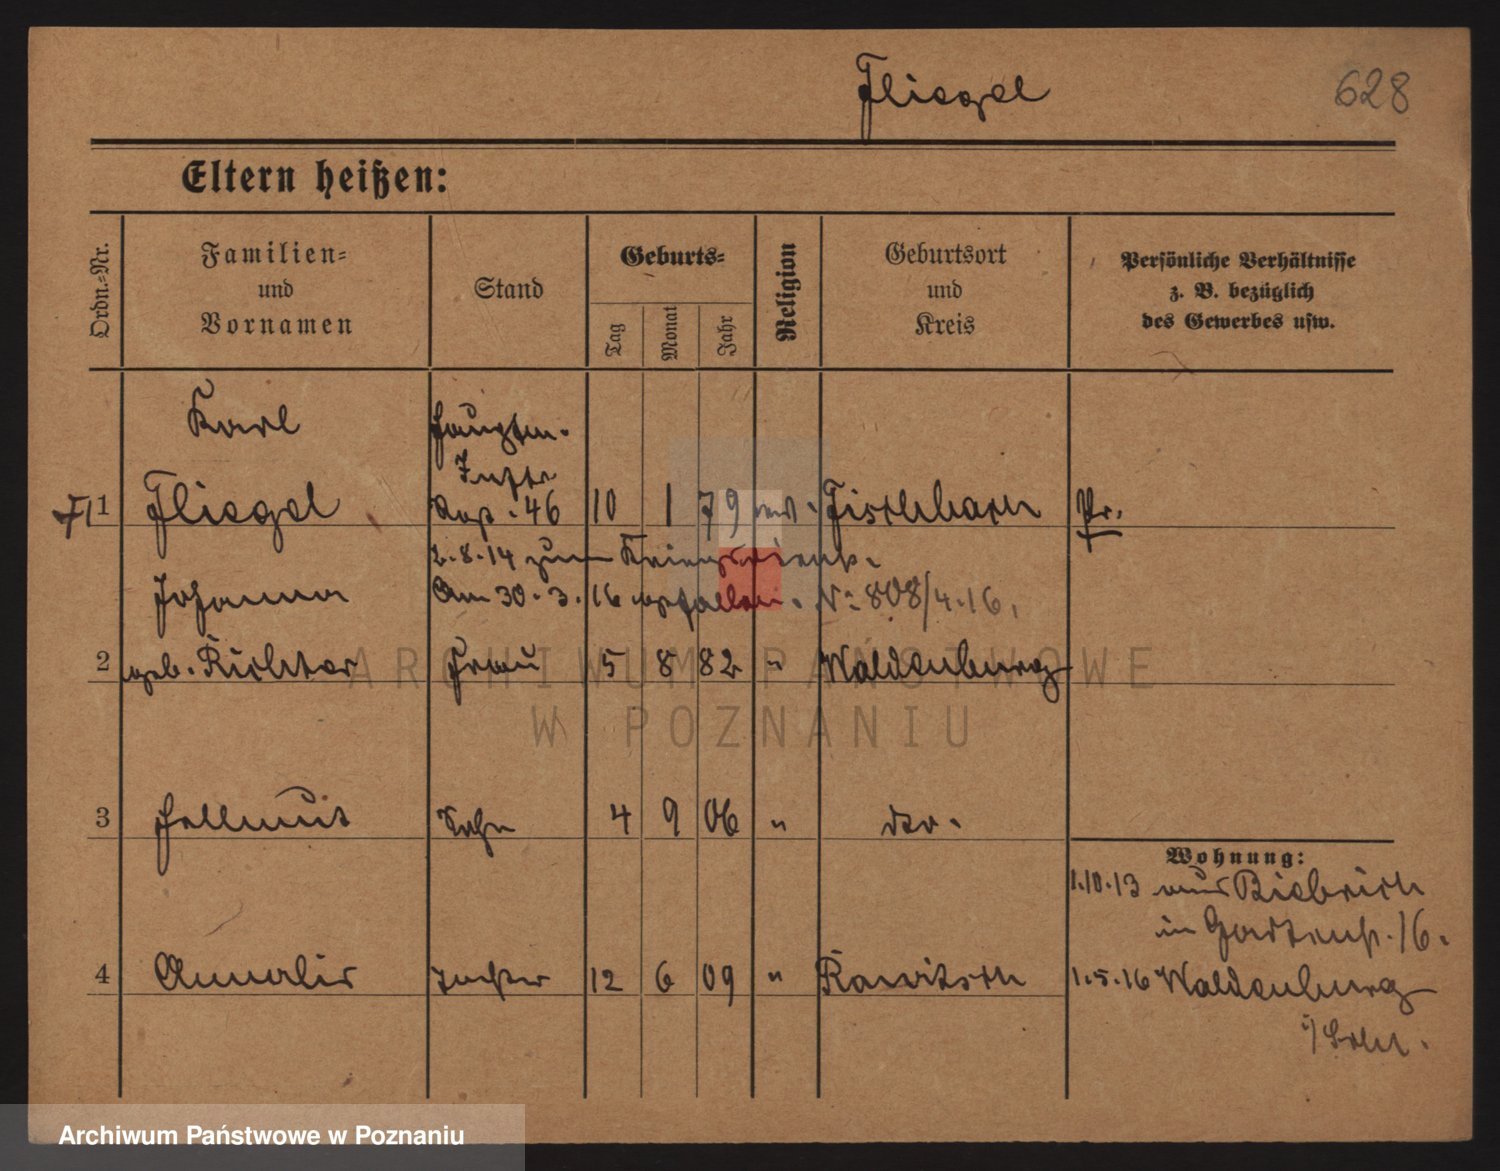 Fliegel 628
Eltern heißen:
Ordn.-Nr.
Familien-
und
Vornamen
Stand
Geburts-
Tag
Monat
Jahr
Religion
Geburtsort
und
Kreis
Persönliche Verhältnisse
z. B. bezüglich
des Gewerbes usw.
Karl Hauptm.
Inftr
1 Fliegel Rgt. 46 10 1 79 Fischbach Pr.
2.8.14 zum Kriegsdienst.
Johanna Am 30.3.16 gefallen. No 808/4.16.
2 geb. Richter Frau 5 8 82 " Waldenburg
3 Hellmut Sohn 4 9 06 " dto.
Wohnung:
1.10.13 Biebrich
in Gartenstr. 16.
4 Annalis Tochter 12 6 09 " Rawitsch 1.5.16 Waldenburg
i/Schl.
ARCHIWUM PAŃSTWOWE
W POZNANIU
Archiwum Państwowe w Poznaniu